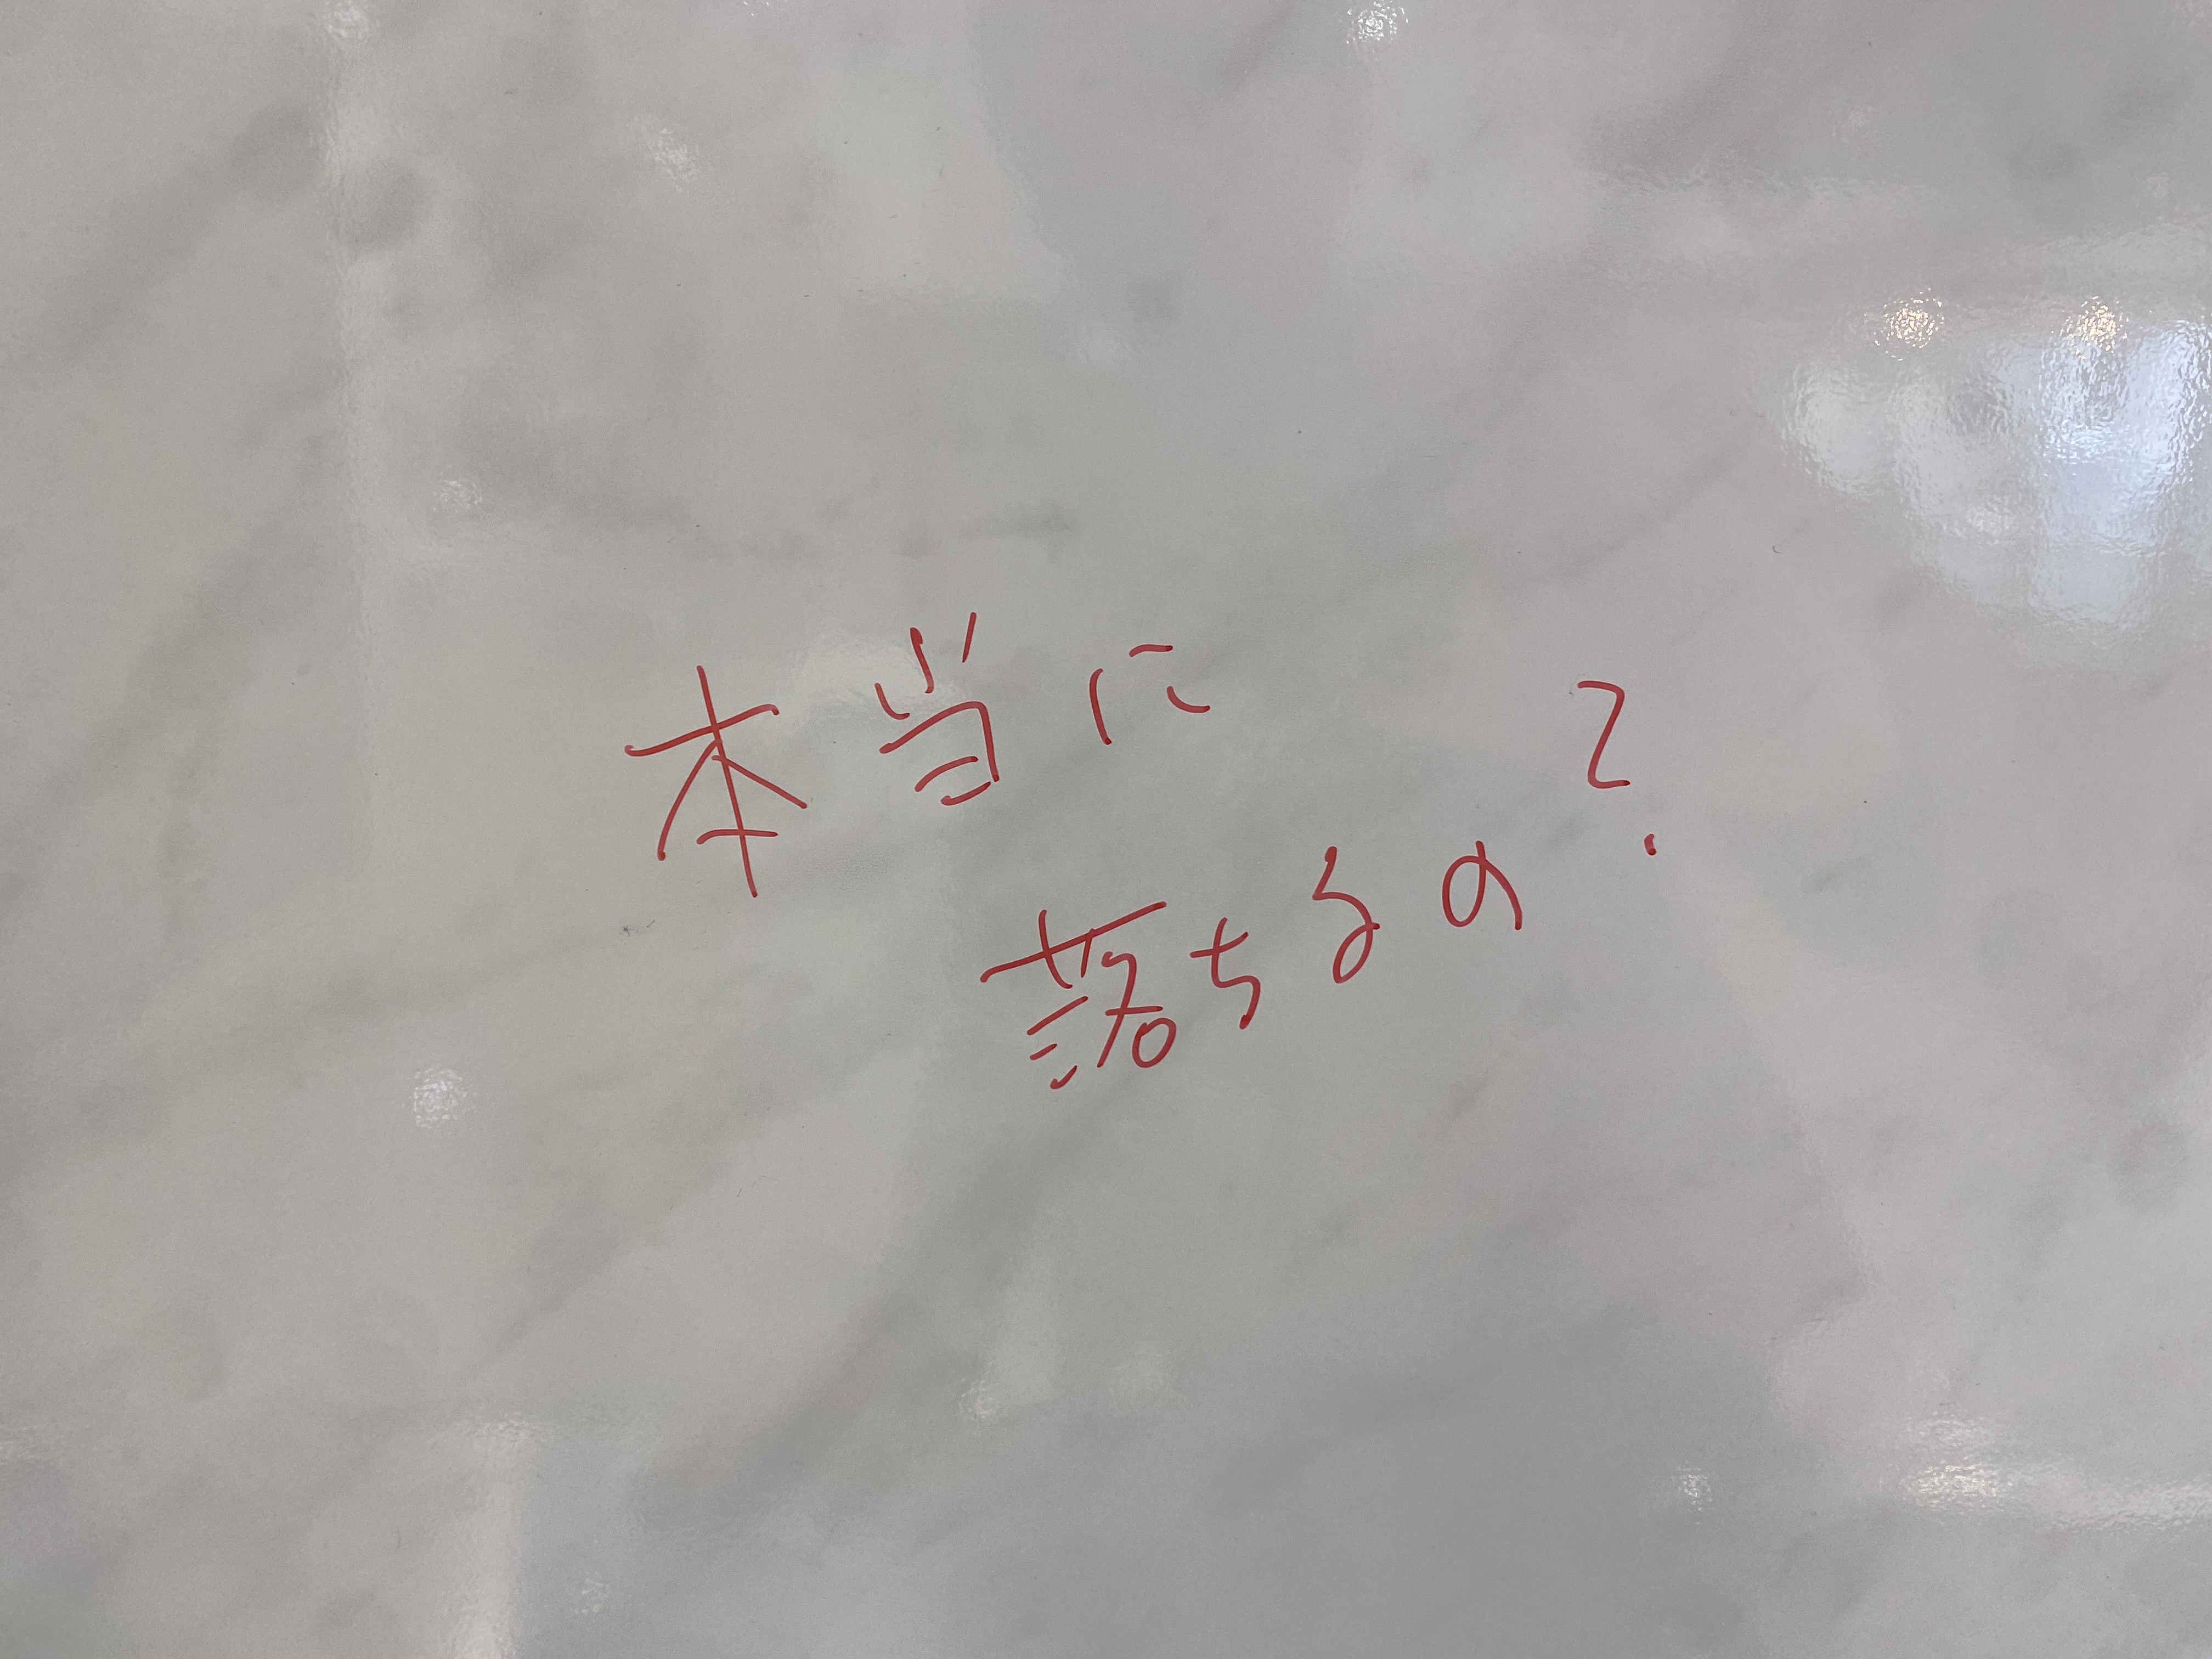 本当に
落ちるの?